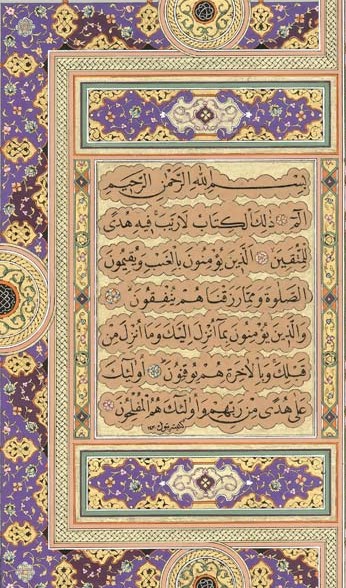 بِسْمِ اللهِ الرَّحْمٰنِ الرَّحِيمِ
الٓمٓ ذٰلِكَ الْكِتَابُ لَا رَيْبَ فِيهِ هُدًى
لِلْمُتَّقِينَ الَّذِينَ يُؤْمِنُونَ بِالْغَيْبِ وَيُقِيمُونَ
الصَّلٰوةَ وَمِمَّا رَزَقْنَاهُمْ يُنْفِقُونَ
وَالَّذِينَ يُؤْمِنُونَ بِمَا أُنْزِلَ إِلَيْكَ وَمَا أُنْزِلَ مِنْ
قَبْلِكَ وَبِالْآخِرَةِ هُمْ يُوقِنُونَ أُولٰئِكَ
عَلٰى هُدًى مِنْ رَبِّهِمْ وَأُولٰئِكَ هُمُ الْمُفْلِحُونَ